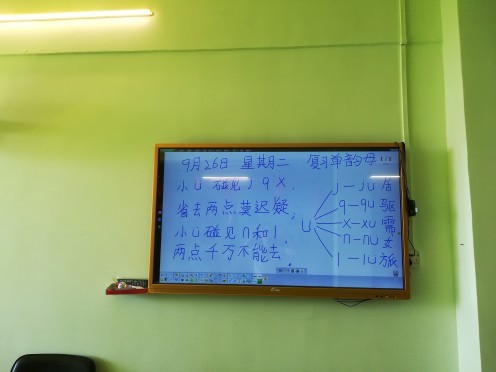 9月26日 星期二 复习单韵母
小ü碰见j q x,
省去两点莫迟疑,
小ü碰见n和l,
两点千万不能去。
ü
j—ju 居
q—qu 驱
x—xu 需
n—nü 女
l—lü 旅